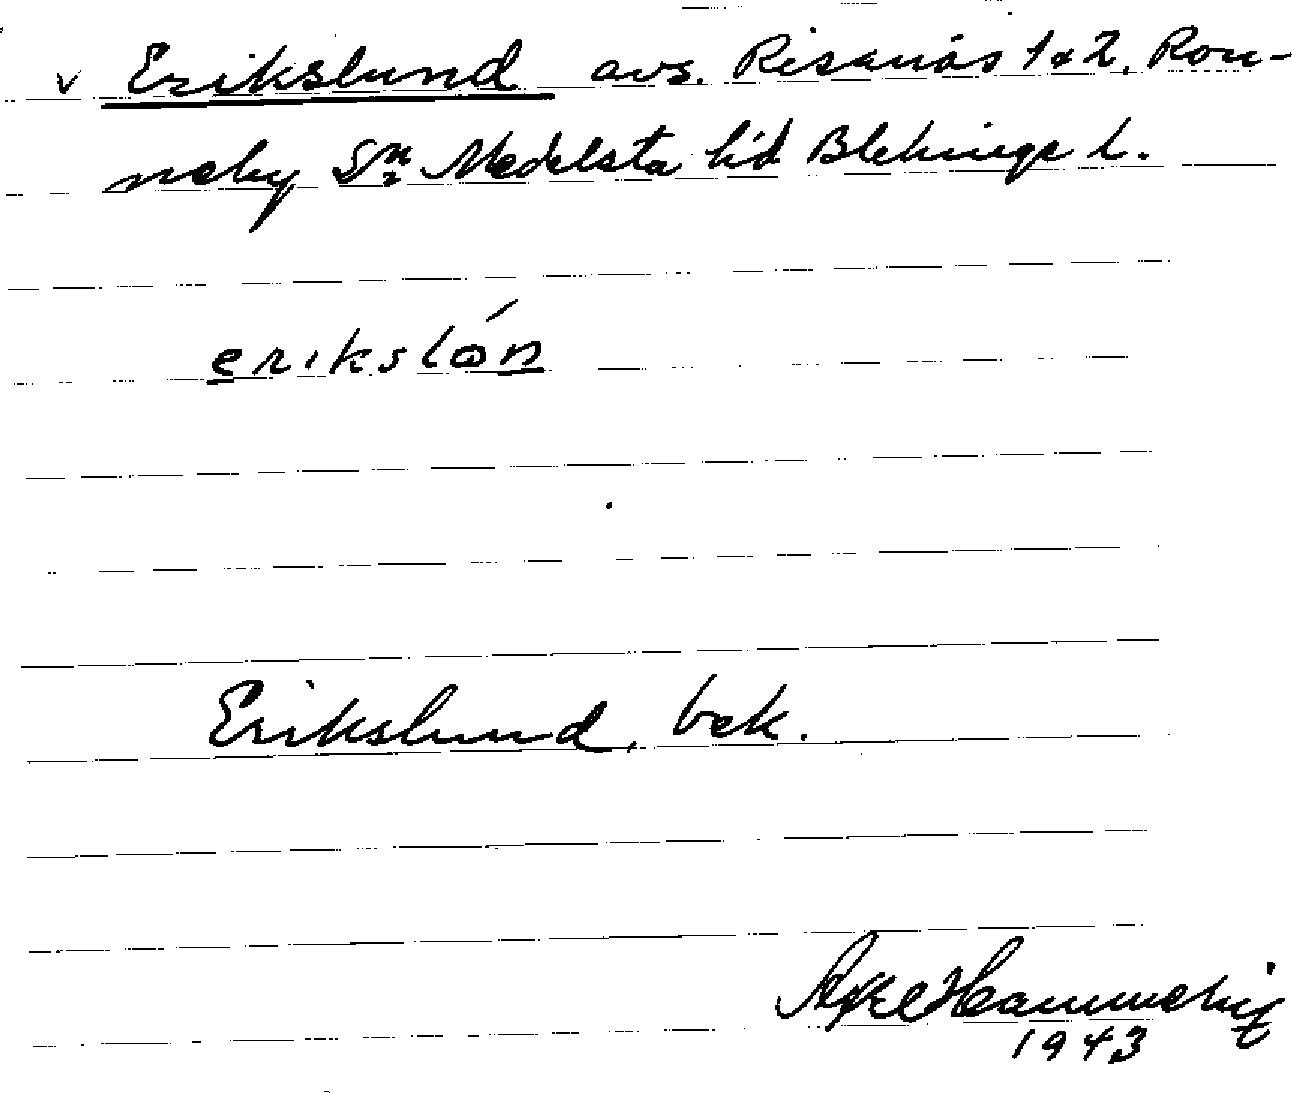 v Erikslund avs. Risanäs 1 & 2, Ron-
neby Sn Medelsta hd Blekinge l.
erikslón
Erikslund, bek.
Axel
1943